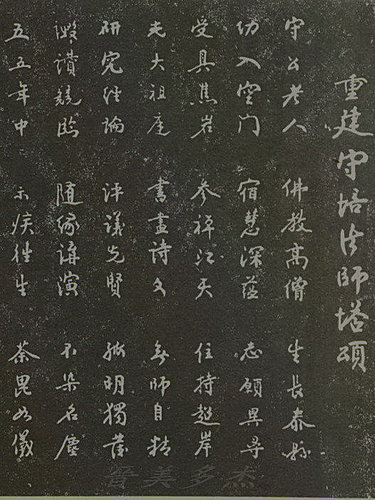 重建守培法師塔頌
守公老人 佛教高僧 生長泰縣
幼入空門 宿慧深蘊 志願異尋
受具焦岩 參禪江天 住持超岸
光大祖庭 書畫詩文 無師自精
研究經論 評議先賢 孤明獨發
毀讚競臨 隨緣講演 不染名塵
五五年中 示疾往生 荼毘如儀
晉美多杰